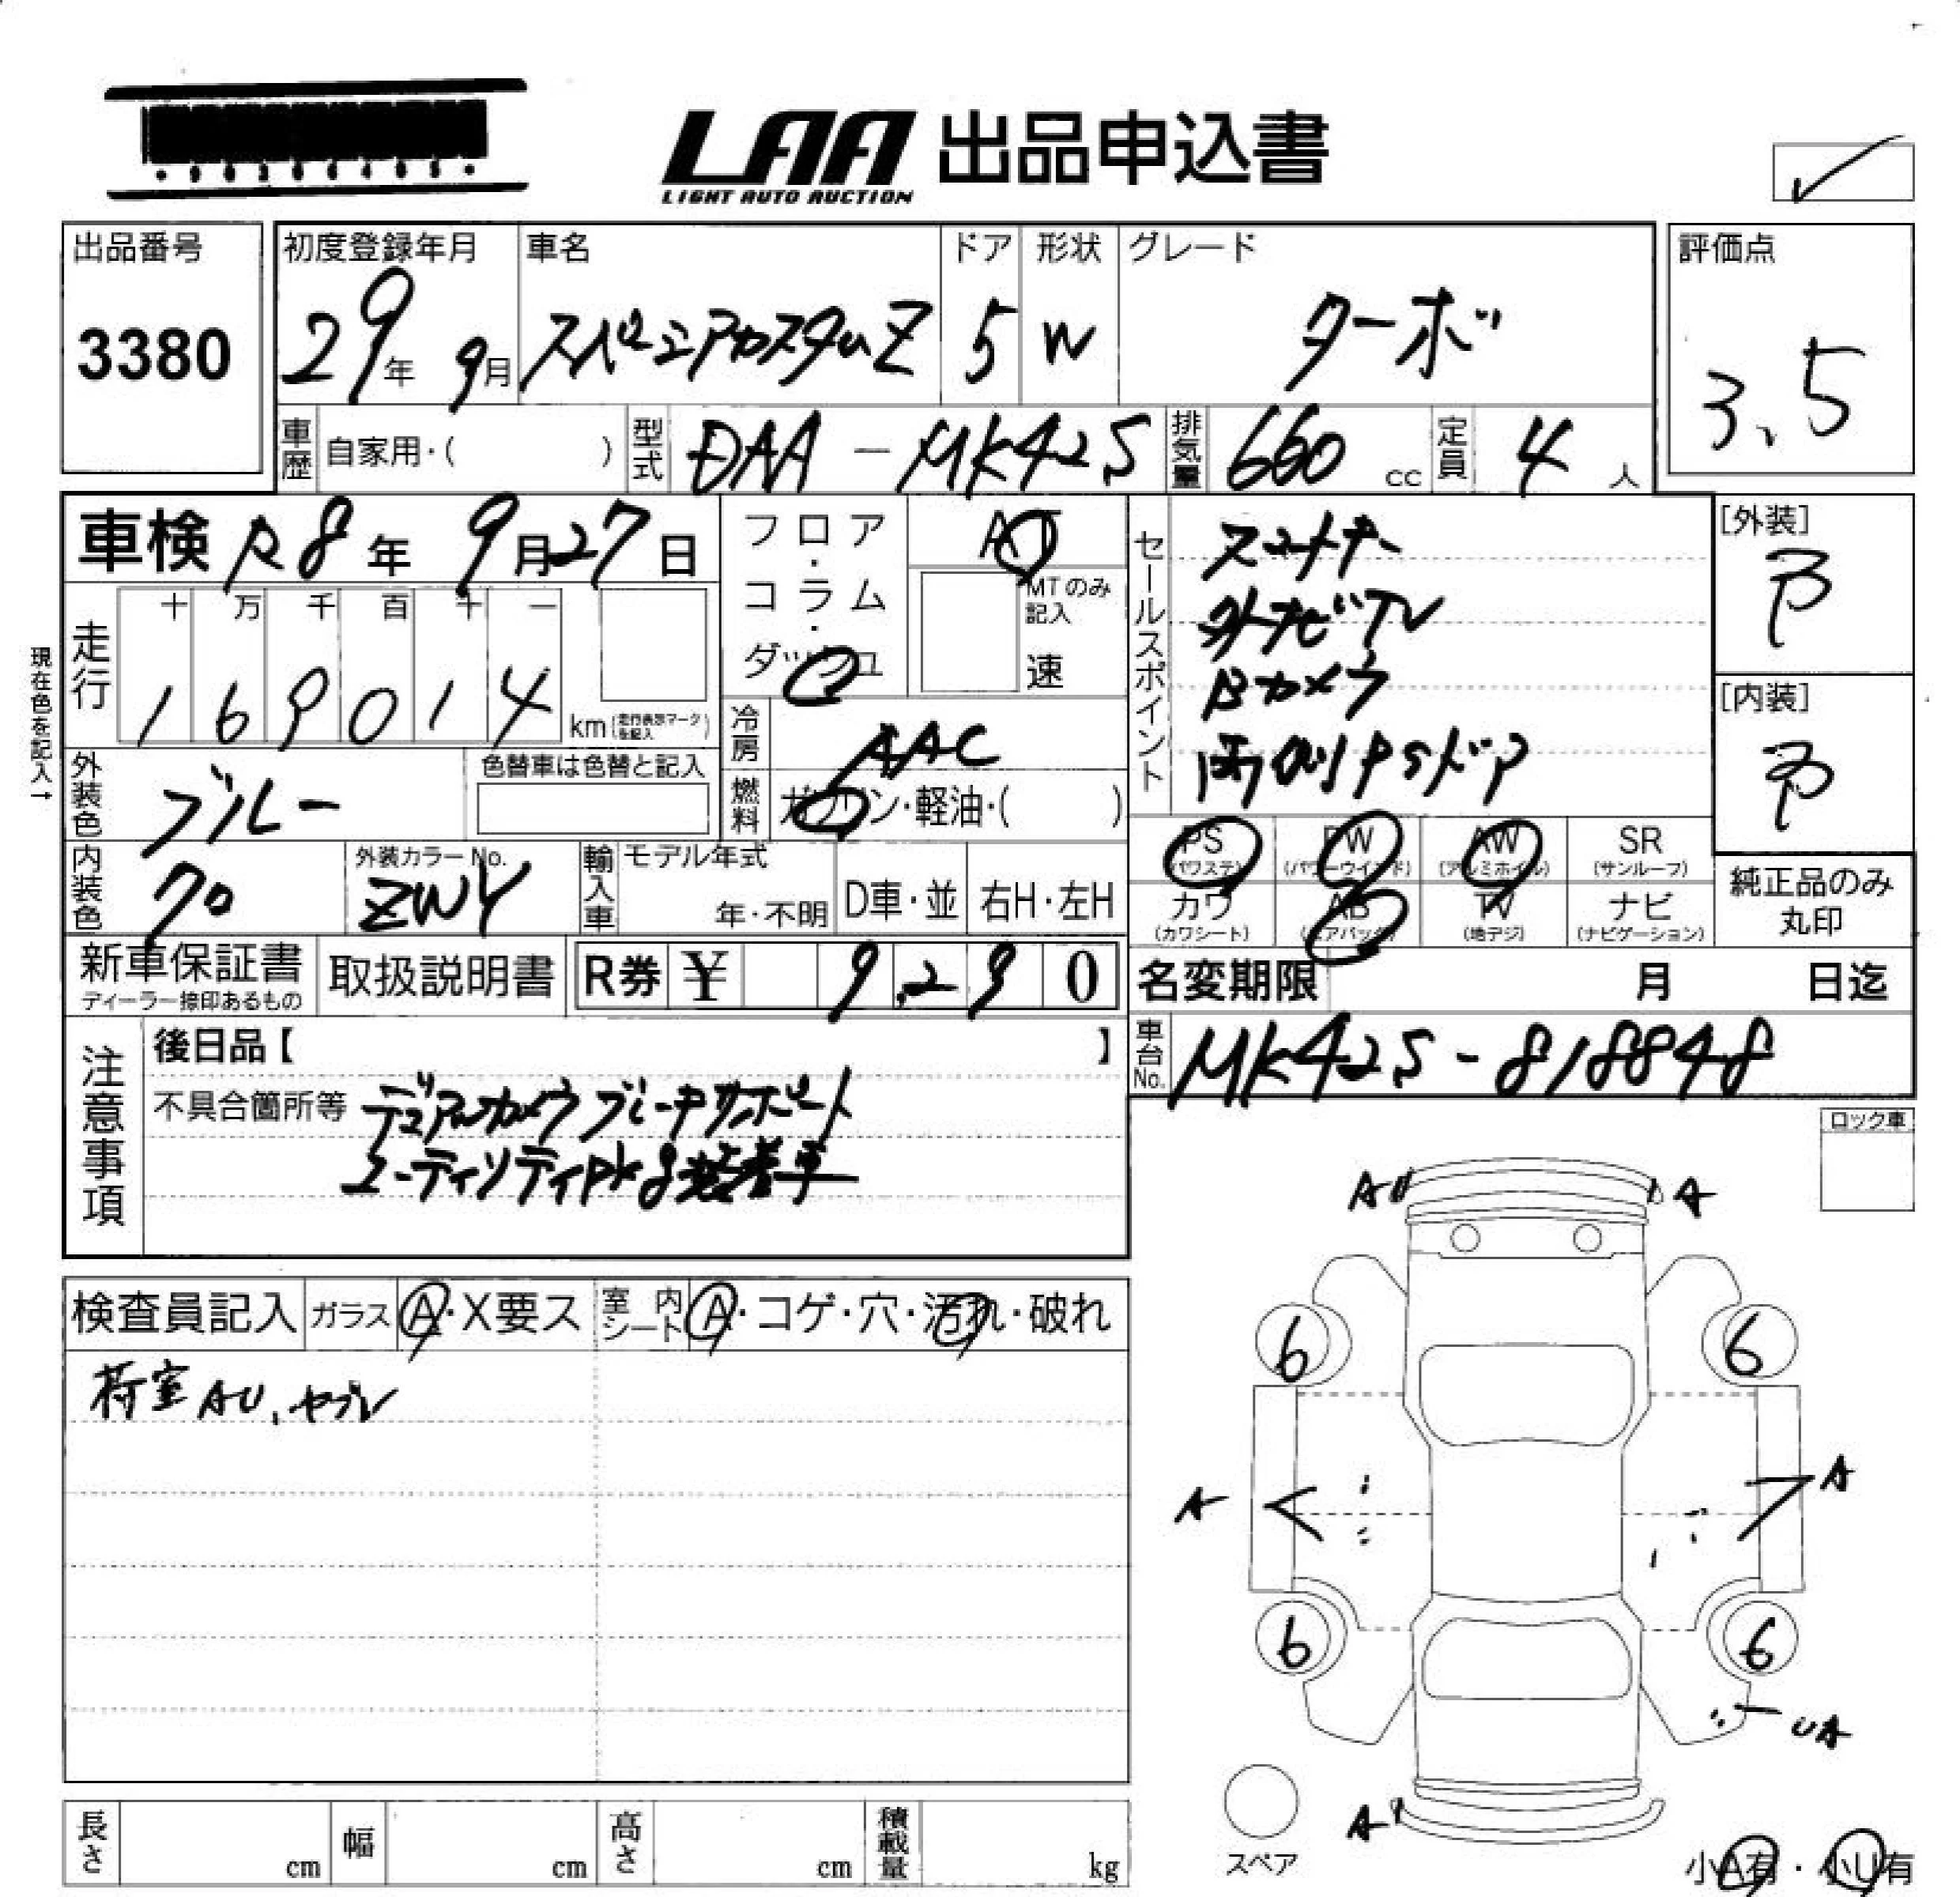 LAA 出品申込書
LIGHT AUTO AUCTION
出品番号
3380
初度登録年月
29年 9月
車名
スペーシアカスタムZ
ドア
5
形状
W
グレード
ターボ
評価点
3.5
車歴 自家用・( )
型式 DAA-MK42S
排気量 660 cc
定員 4 人
車検 R8年 9月27日
フロア・コラム・ダッシュ
AT
MTのみ記入
速
セールスポイント
スマートキー
外ナビTV
Bカメラ
両側PSドア
[外装]
B
[内装]
B
現在色を記入→
走行
十 万 千 百 十 一
1 6 9 0 1 4 km (走行表示マークを記入)
冷房 AAC
外装色 ブルー
色替車は色替と記入
燃料 ガソリン・軽油・( )
PS (パワステ)
PW (パワーウインド)
AW (アルミホイル)
SR (サンルーフ)
カワ (カワシート)
AB (エアバック)
TV (地デジ)
ナビ (ナビゲーション)
純正品のみ
丸印
内装色 クロ
外装カラーNo. ZWY
輸入車 モデル年式
年・不明
D車・並
右H・左H
新車保証書
ディーラー捺印あるもの
取扱説明書
R券 ¥ 9,290
名変期限 月 日迄
注意事項
後日品【 】
不具合箇所等 デュアルカメラブレーキサポート
ユーティリティPKg装着車
車台No. MK42S-818848
ロック車
検査員記入
ガラス A・X要ス
室内シート A・コゲ・穴・汚れ・破れ
荷室AU、ヤブレ
A
A
6
6
A
A
6
6
UA
A
スペア
小A有・小U有
長さ cm
幅 cm
高さ cm
積載量 kg